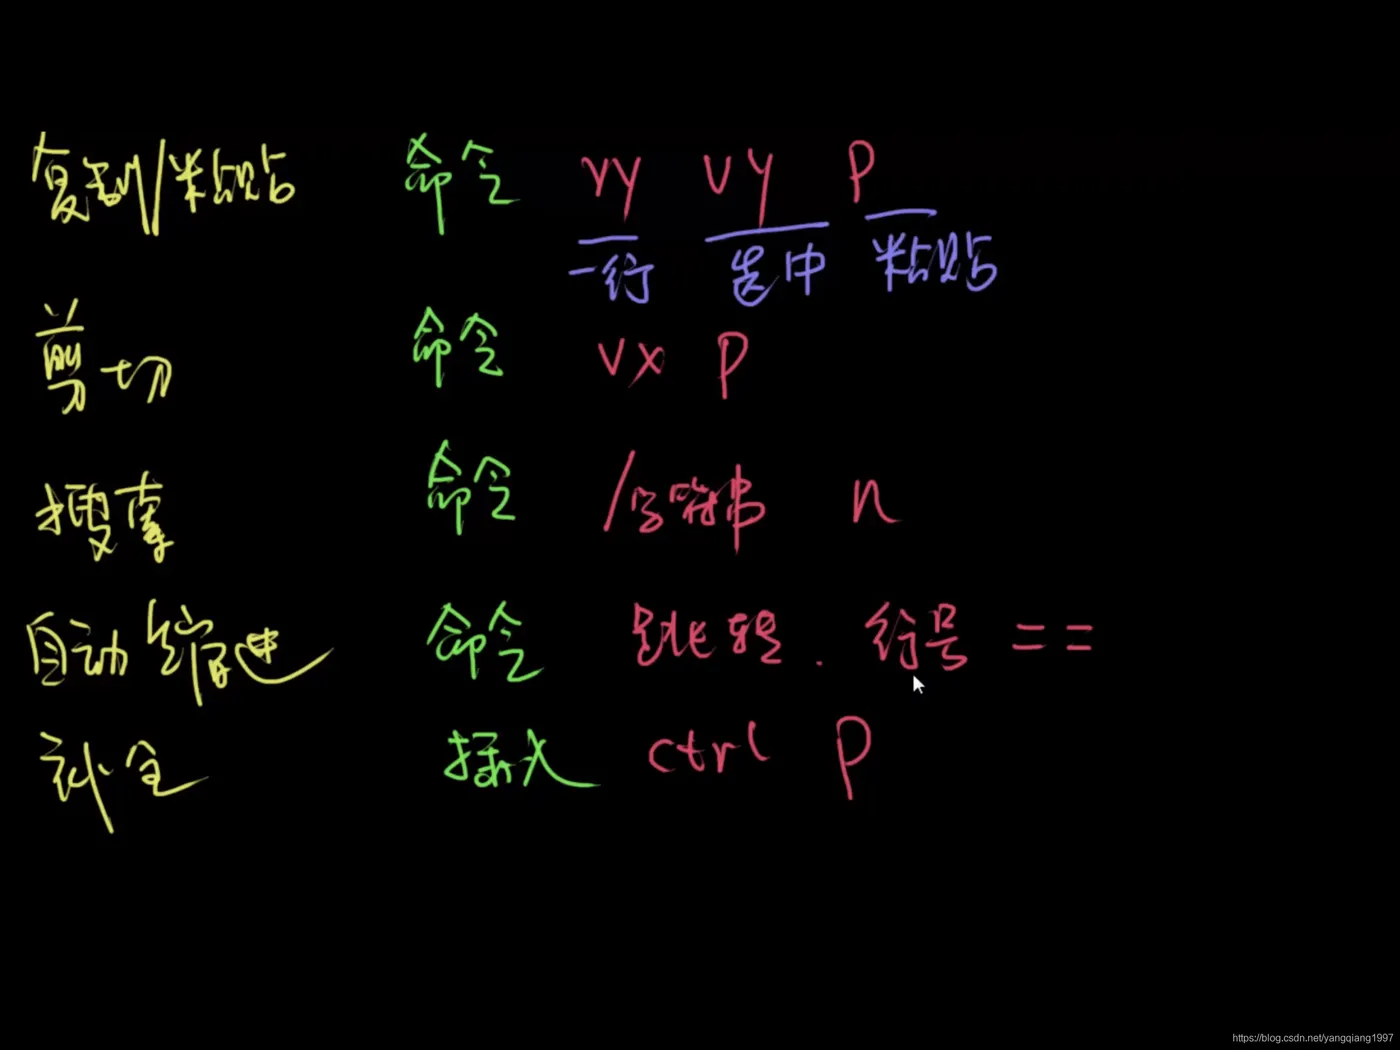 复制/粘贴 命令 yy vy p
一行 选中 粘贴
剪切 命令 vx p
搜索 命令 /字符串 n
自动缩进 命令 跳转. 行号 ==
补全 插入 ctrl p
https://blog.csdn.net/yangqiang1997